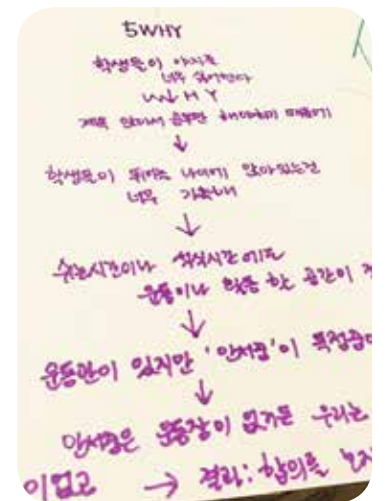 5WHY
학생들이 야자를
너무 싫어한다
WHY
계속 앉아서 공부만 해야하기 때문에
학생들이 뛰어노는 나이에 앉아있는건
너무 가혹해
쉬는시간이나 석식시간에도
운동이나 활동 할 공간이
운동관이 있지만 '안서중'이 독점중
안서중은 운동장이 없거든 우리는
이없고 → 결과: 합의를